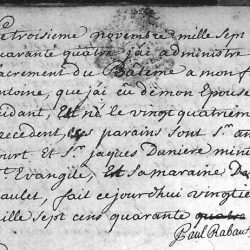 troisieme novembre mille sept
quarante quatre j'ai administré
sacrement du Bateme a mon f
antoine, que j'ai eu de mon Epouse
cidant, Est né le vingt quatriém
precedent, ses parains sont Sr. an
ourt et Sr. jaques Daniere mini
St. Evangile, Et sa maraine De
aulet, fait cejourdhui vingtie
ille sept cens quarante quatre
Paul Rabau